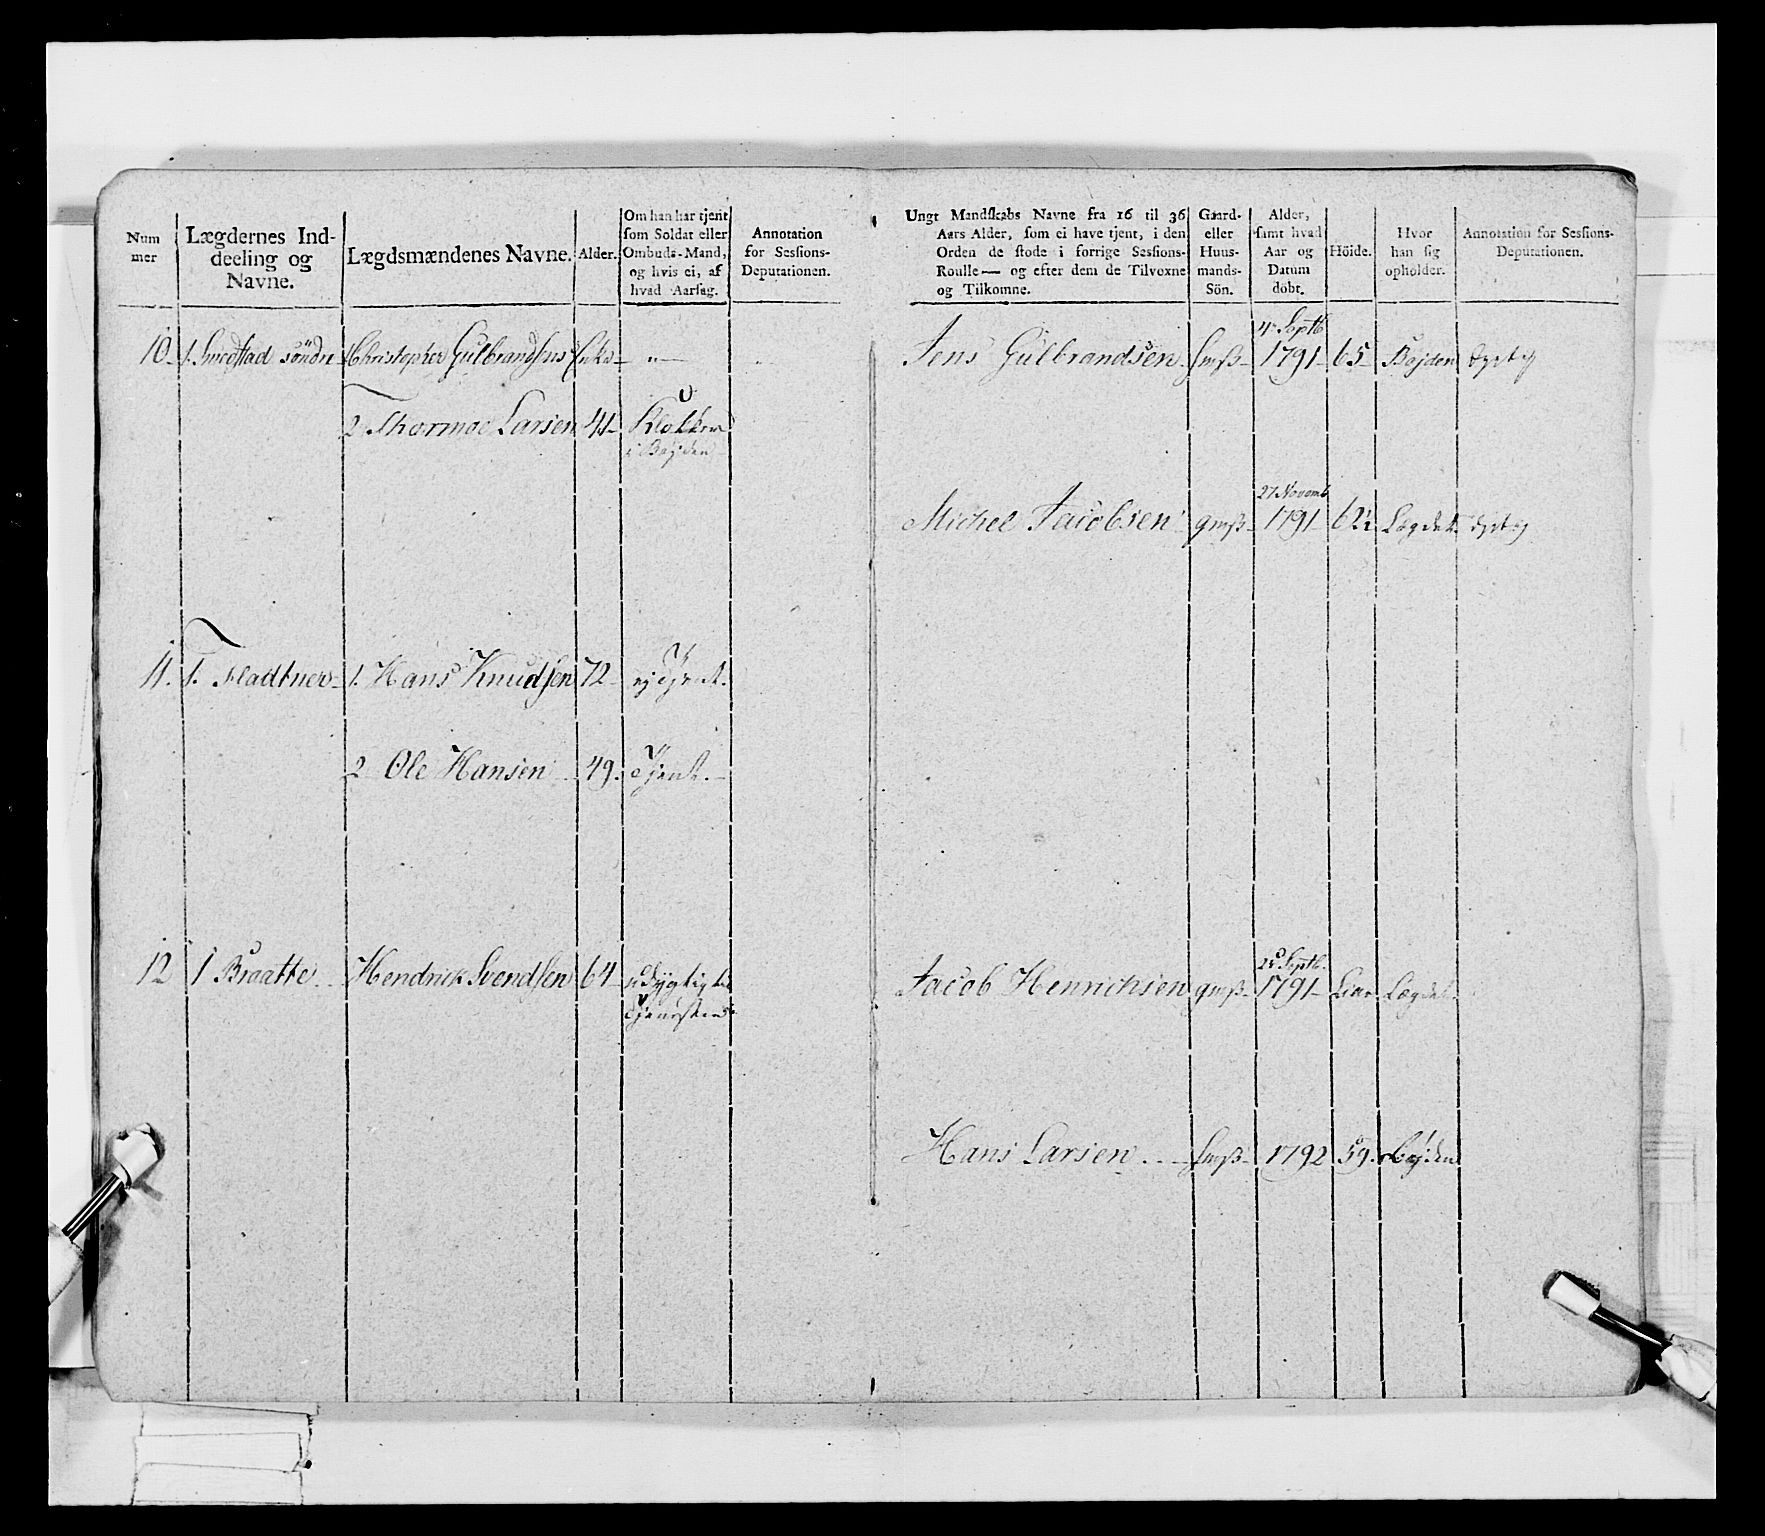 Num
mer
Lægdernes Ind-
deeling og
Navne.
Lægdsmændenes Navne.
Alder.
Om han har tjent
som Soldat eller
Ombuds-Mand,
og hvis ei, af
hvad Aarsag.
Annotation
for Sessions-
Deputationen.
Ungt Mandskabs Navne fra 16 til 36
Aars Alder, som ei have tjent, i den
Orden de stode i forrige Sessions-
Roulle — og efter dem de Tilvoxne
og Tilkomne.
Gaard-
eller
Huus-
mands-
Sön.
Alder,
samt hvad
Aar og
Datum
döbt.
Höide.
Hvor
han sig
opholder.
Annotation for Sessions-
Deputationen.
4 Septb
10 1. Smedstad söndre 1 Christopher Gulbrandsens Enke — " — Jens Gulbrandsen 1791 65 Bojden
2 Thormoe Larsen 41 Klokker
i Bojden
27 Novemb
Michel Jacobsen gmß 1791 62½ Lægdet
11. 1. Fladtner 1. Hans Knudsen 72 ej Tjent.
2 Ole Hansen 49. Tjent.
Septb.
12 1 Braatte Hendrick Svendsen 64 udygtig til
Tjenesten Jacob Henrichsen gmß 1791 Lægdet
Hans Larsen 1792 59. Bojden